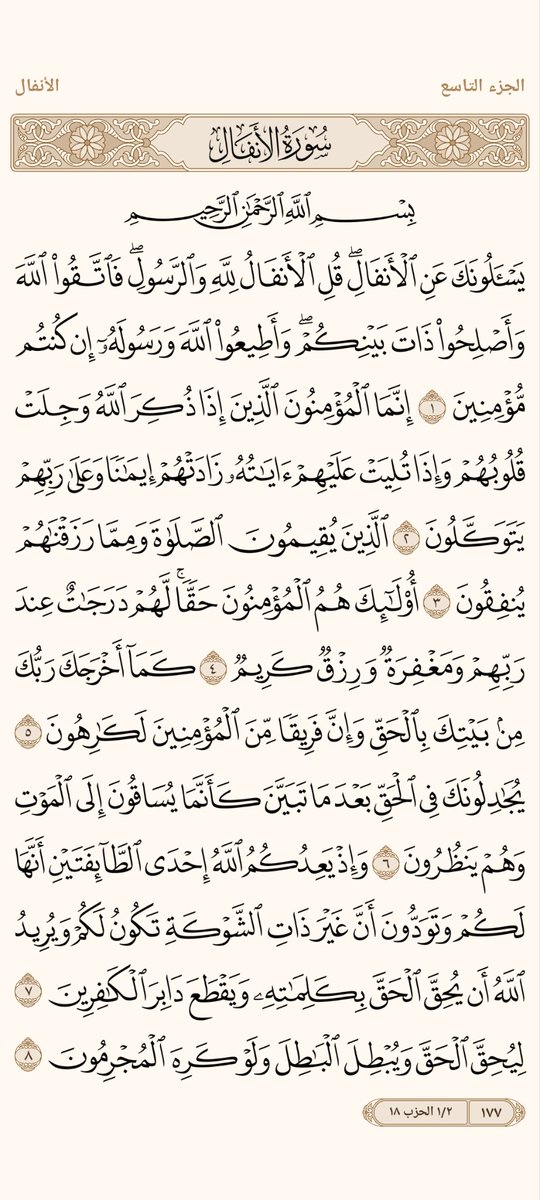 الجزء التاسع
الأنفال
سُورَةُ الأَنفَالِ
بِسْمِ ٱللَّهِ ٱلرَّحْمَٰنِ ٱلرَّحِيمِ
يَسْـَٔلُونَكَ عَنِ ٱلْأَنفَالِۖ قُلِ ٱلْأَنفَالُ لِلَّهِ وَٱلرَّسُولِۖ فَٱتَّقُوا۟ ٱللَّهَ
وَأَصْلِحُوا۟ ذَاتَ بَيْنِكُمْۖ وَأَطِيعُوا۟ ٱللَّهَ وَرَسُولَهُۥٓ إِن كُنتُم
مُّؤْمِنِينَ ١ إِنَّمَا ٱلْمُؤْمِنُونَ ٱلَّذِينَ إِذَا ذُكِرَ ٱللَّهُ وَجِلَتْ
قُلُوبُهُمْ وَإِذَا تُلِيَتْ عَلَيْهِمْ ءَايَٰتُهُۥ زَادَتْهُمْ إِيمَٰنًا وَعَلَىٰ رَبِّهِمْ
يَتَوَكَّلُونَ ٢ ٱلَّذِينَ يُقِيمُونَ ٱلصَّلَوٰةَ وَمِمَّا رَزَقْنَٰهُمْ
يُنفِقُونَ ٣ أُو۟لَٰٓئِكَ هُمُ ٱلْمُؤْمِنُونَ حَقًّاۚ لَّهُمْ دَرَجَٰتٌ عِندَ
رَبِّهِمْ وَمَغْفِرَةٌ وَرِزْقٌ كَرِيمٌ ٤ كَمَآ أَخْرَجَكَ رَبُّكَ
مِنۢ بَيْتِكَ بِٱلْحَقِّ وَإِنَّ فَرِيقًا مِّنَ ٱلْمُؤْمِنِينَ لَكَٰرِهُونَ ٥
يُجَٰدِلُونَكَ فِى ٱلْحَقِّ بَعْدَ مَا تَبَيَّنَ كَأَنَّمَا يُسَاقُونَ إِلَى ٱلْمَوْتِ
وَهُمْ يَنظُرُونَ ٦ وَإِذْ يَعِدُكُمُ ٱللَّهُ إِحْدَى ٱلطَّآئِفَتَيْنِ أَنَّهَا
لَكُمْ وَتَوَدُّونَ أَنَّ غَيْرَ ذَاتِ ٱلشَّوْكَةِ تَكُونُ لَكُمْ وَيُرِيدُ
ٱللَّهُ أَن يُحِقَّ ٱلْحَقَّ بِكَلِمَٰتِهِۦ وَيَقْطَعَ دَابِرَ ٱلْكَٰفِرِينَ ٧
لِيُحِقَّ ٱلْحَقَّ وَيُبْطِلَ ٱلْبَٰطِلَ وَلَوْ كَرِهَ ٱلْمُجْرِمُونَ ٨
١٧٧
١/٢ الحزب ١٨